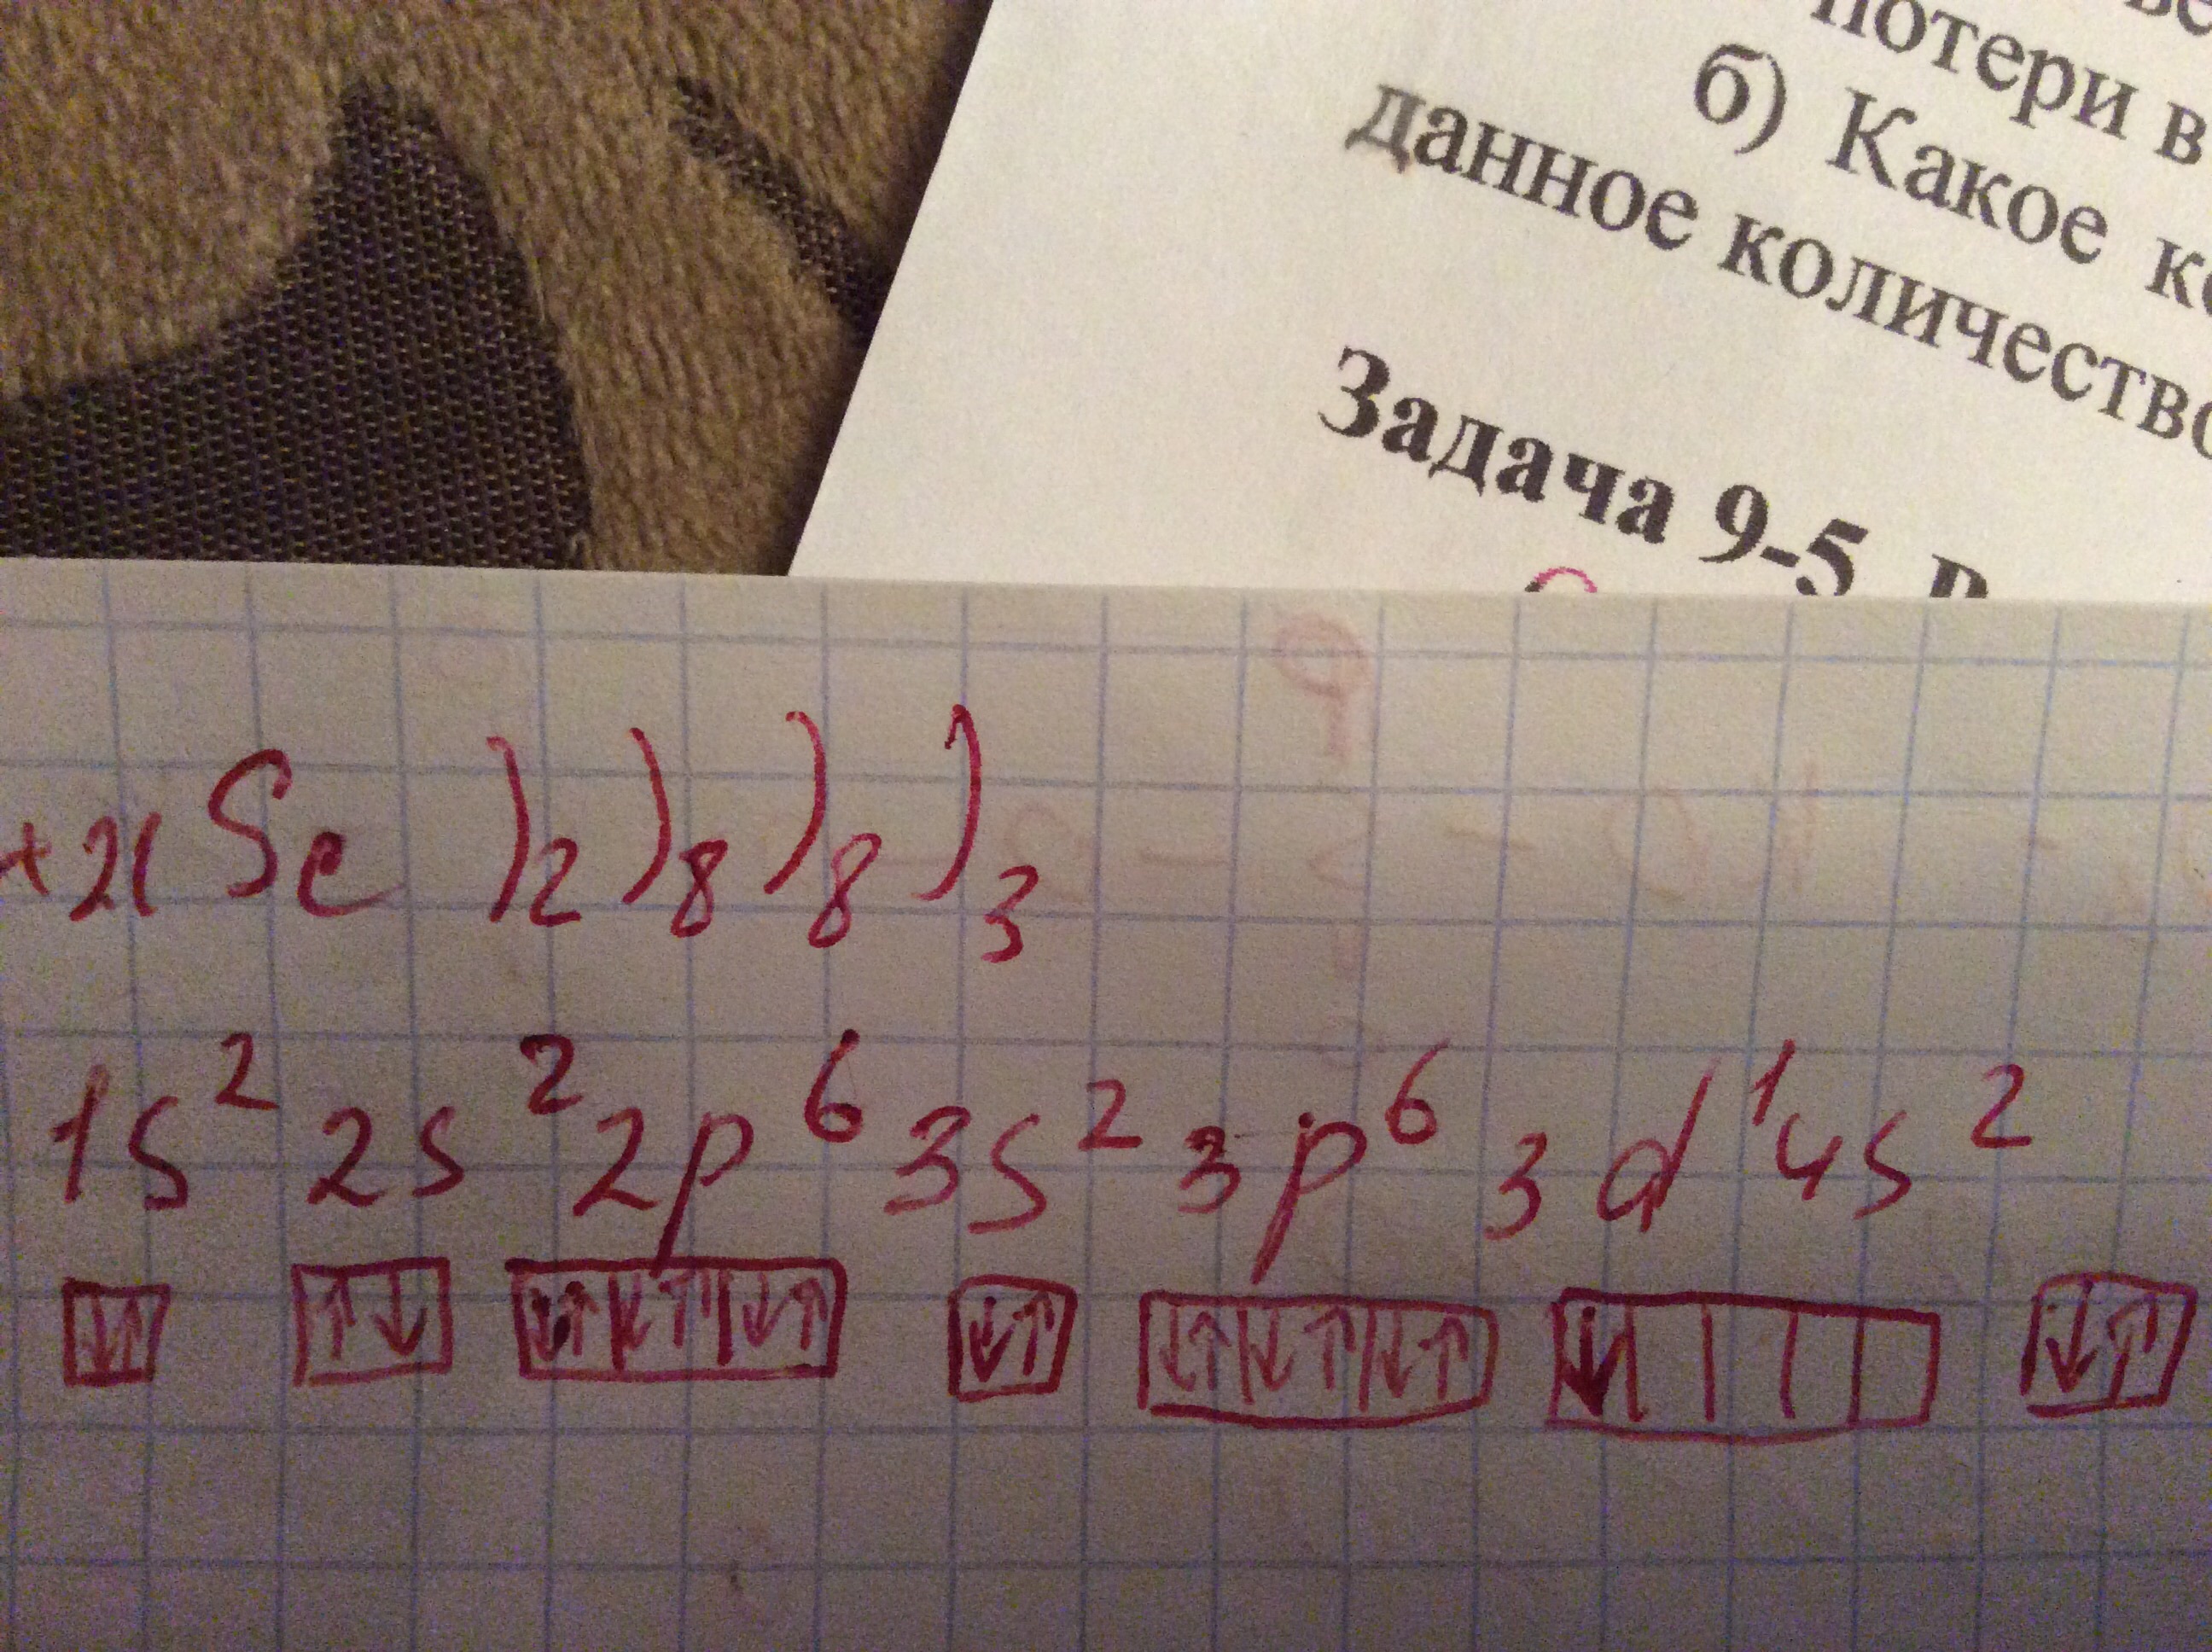 потери в
б) Какое
данное количество
Задача 9-5
+21 Se )2 )8 )8 )3
1s² 2s² 2p⁶ 3s² 3p⁶ 3d¹ 4s²
↓↑ ↑↓ ↓↑ ↓↑ ↓↑ ↓↑ ↓↑ ↓↑ ↓↑ ↓ ↓↑